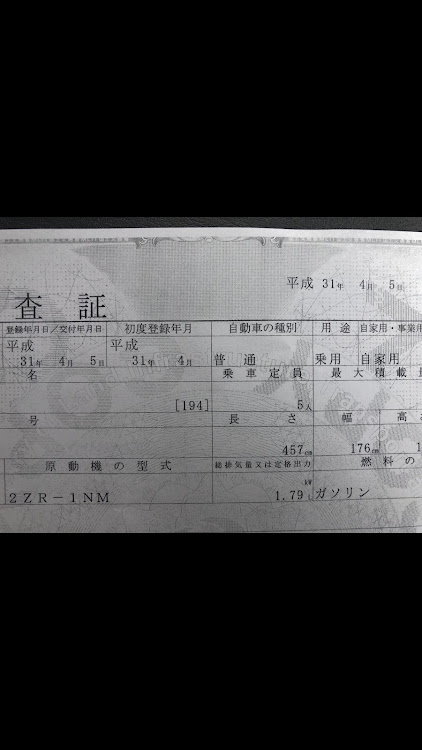 平成 31年 4月 5日
査 証
登録年月日／交付年月日 初度登録年月 自動車の種別 用途 自家用・事業用
平成 平成
31年 4月 5日 31年 4月 普 通 乗用 自家用
名 乗 車 定 員 最 大 積 載
[194] 5人
号 長 さ 幅 高
457cm 176cm 1
原 動 機 の 型 式 総排気量又は定格出力 燃 料 の
kw
2ZR－1NM 1.79L ガソリン